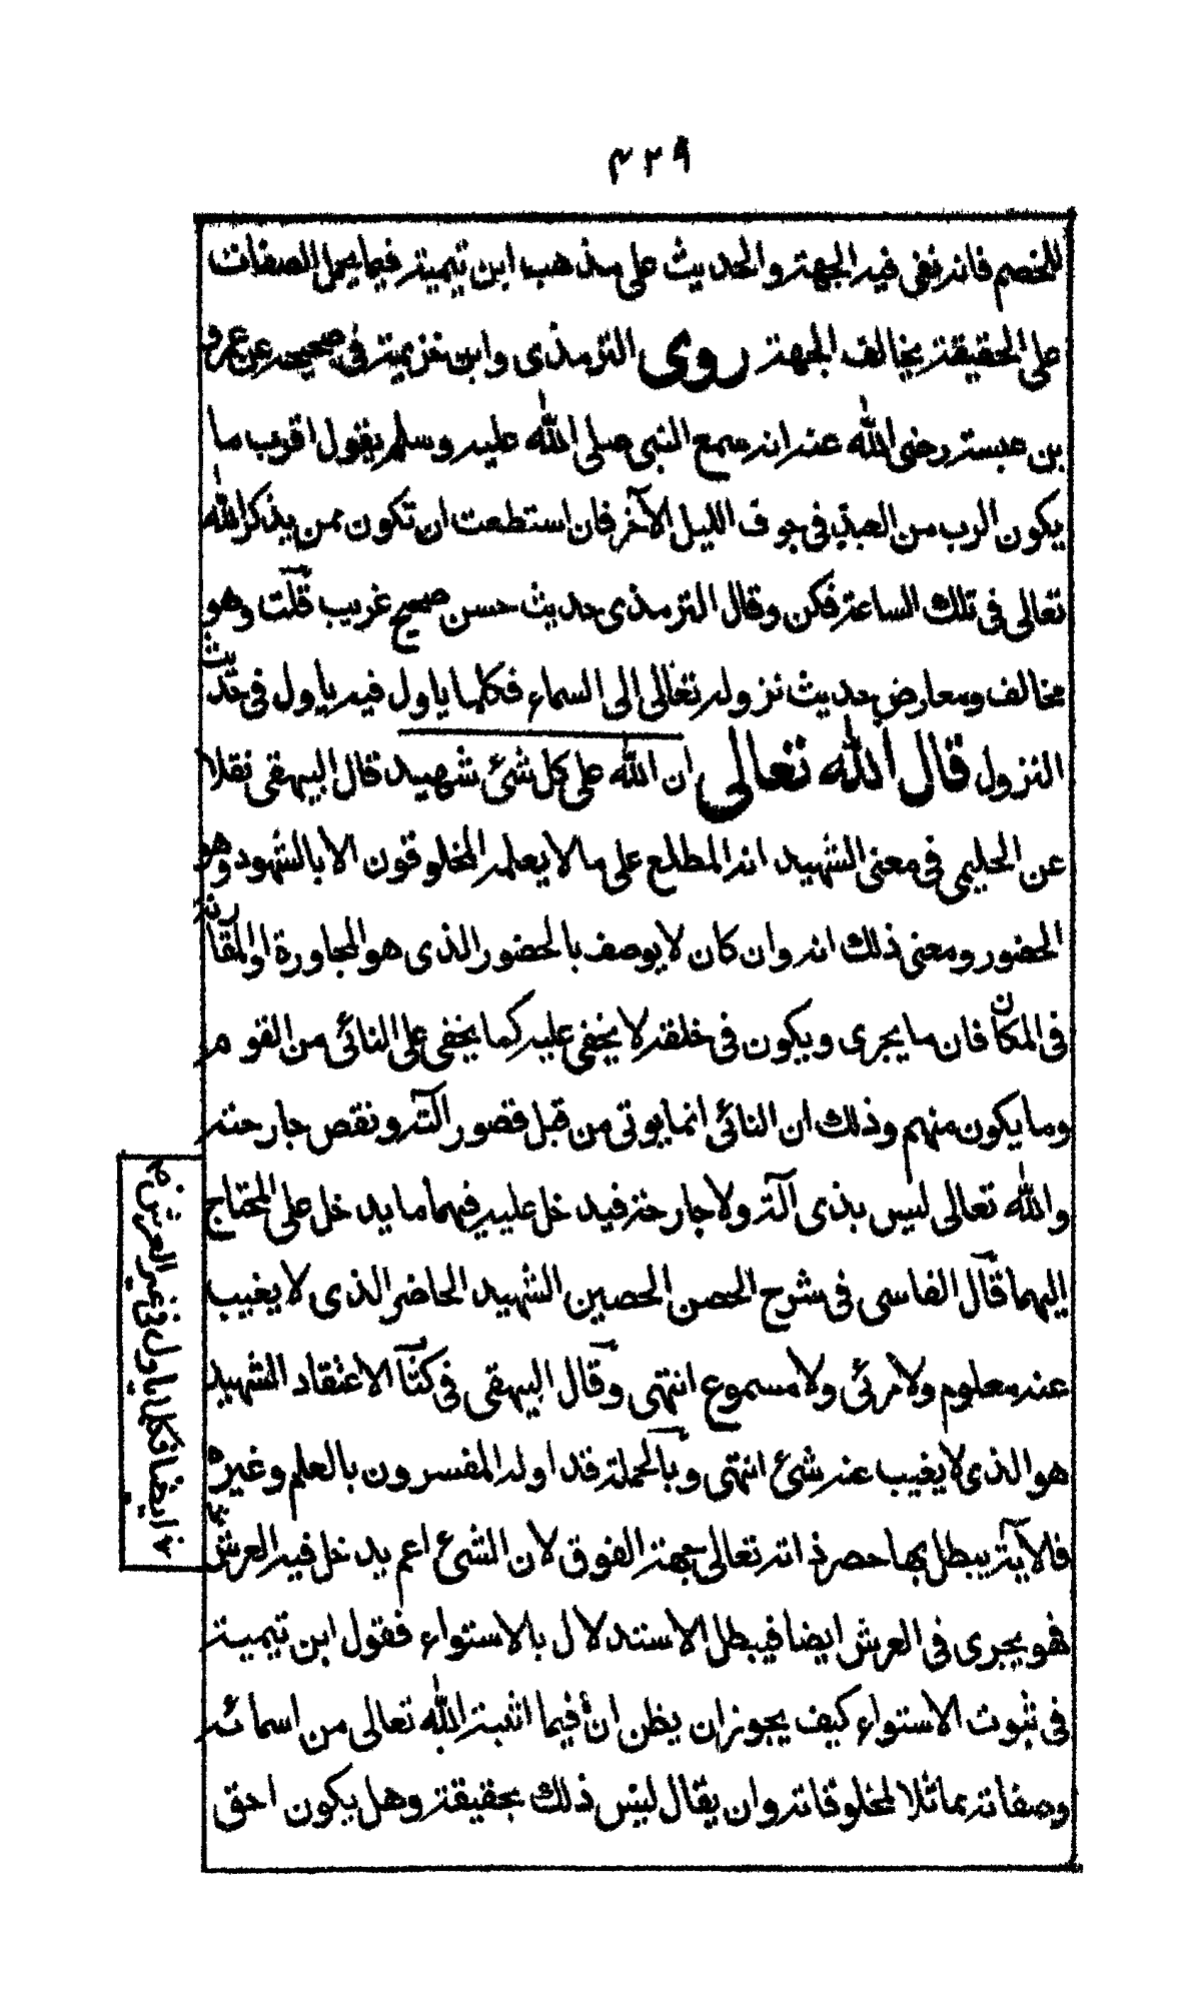 ٤٢٩
للخصم فانه نفى فيه الجهة والحديث على مذهب ابن تيمية فيما يحمل الصفات
على الحقيقة يخالف الجهة روى الترمذى وابن خزيمة فى صحيحه عن عمرو
بن عبسة رضى الله عنه انه سمع النبى صلى الله عليه وسلم يقول اقرب ما
يكون الرب من العبد فى جوف الليل الآخر فان استطعت ان تكون ممن يذكر الله
تعالى فى تلك الساعة فكن وقال الترمذى حديث حسن صحيح غريب قلت وهو
مخالف ومعارض حديث نزوله تعالى الى السماء فكلما ياول فيه ياول فى حديث
النزول قال الله تعالى ان الله على كل شئ شهيد قال البيهقى نقلا
عن الحليمى فى معنى الشهيد انه المطلع على ما لا يعلمه المخلوقون الا بالشهود وهو
الحضور ومعنى ذلك انه وان كان لا يوصف بالحضور الذى هو المجاورة او المقاربة
فى المكان فان ما يجرى ويكون فى خلقه لا يخفى عليه كما يخفى على النائى من القوم
وما يكون منهم وذلك ان النائى انما يوتى من قبل قصور آلته ونقص جارحته
والله تعالى ليس بذى آلة ولا جارحة فيدخل عليه فيهما ما يدخل على المحتاج
اليهما قال الفاسى فى شرح الحصن الحصين الشهيد الحاضر الذى لا يغيب
عنه معلوم ولا مرئى ولا مسموع انتهى وقال البيهقى فى كتاب الاعتقاد الشهيد
هو الذى لا يغيب عنه شئ انتهى وبالجملة قد اوله المفسرون بالعلم وغيره
فالآية يبطل بها حصر ذاته تعالى جهة الفوق لان الشئ اعم يدخل فيه العرش
فهو يجرى فى العرش ايضا فيبطل الاستدلال بالاستواء فقول ابن تيمية
فى ثبوت الاستواء كيف يجوز ان يظن ان فيما اثبته الله تعالى من اسمائه
وصفاته مماثلا لمخلوقاته وان يقال ليس ذلك بحقيقة وهل يكون احق
ايضا فكلما ياول فى غير العرش